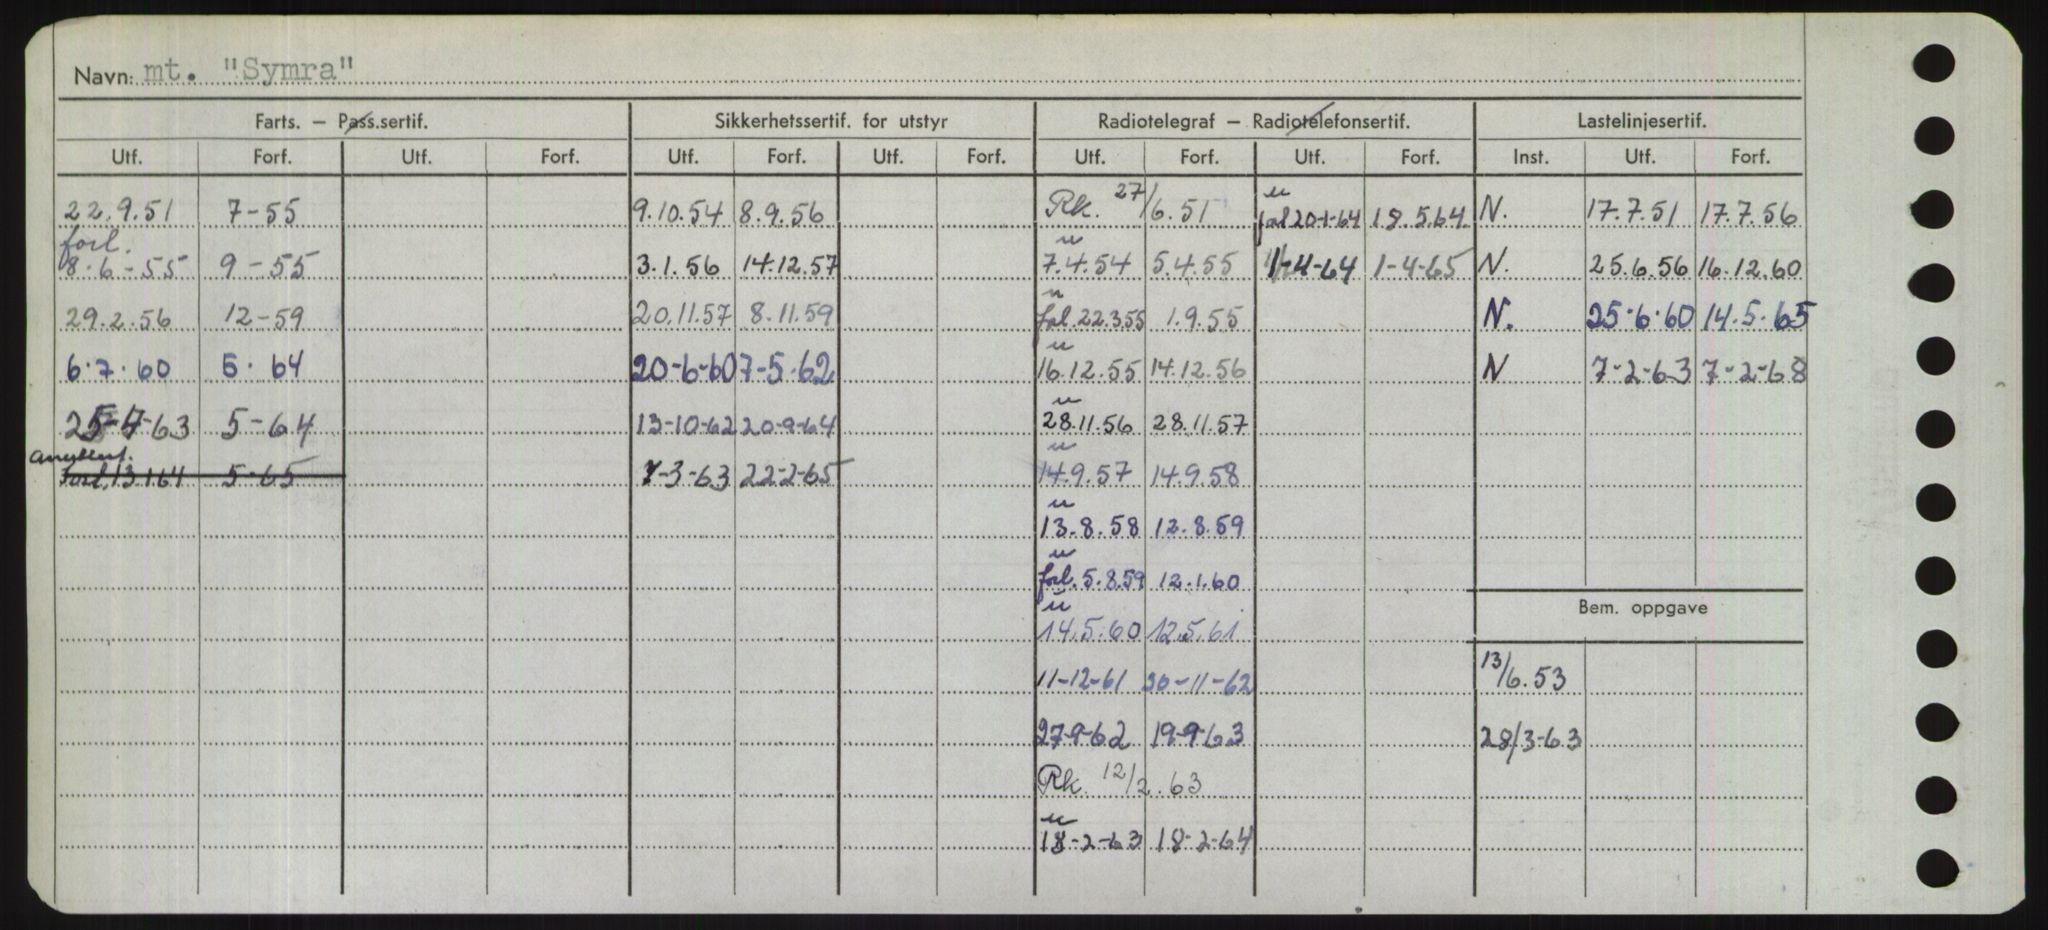 Navn: mt. "Symra"
Farts. – Pass.sertif. Sikkerhetssertif. for utstyr Radiotelegraf – Radiotelefonsertif. Lastelinjesertif.
Utf. Forf. Utf. Forf. Utf. Forf. Utf. Forf. Utf. Forf. Utf. Forf. Inst. Utf. Forf.
22.9.51 7-55 9.10.54 8.9.56 Rk. 27/6.51 u forl 20-1-64 18.5.64. N. 17.7.51 17.7.56
forl. 8-6-55 9-55 3.1.56 14.12.57 u 7.4.54 5.4.55 1-4-64 1-4-65 N. 25.6.56 16.12.60
29.2.56 12-59 20.11.57 8.11.59 u forl. 22.3.55 1.9.55 N. 25.6.60 14.5.65
6.7.60 5.64 20-6-60 7-5-62 u 16.12.55 14.12.56 N 7-2-63 7-2-68
25-4-63 5-64 13-10-62 20-9-64 u 28.11.56 28.11.57
annullert.
Forl. 13 1 64 5-65 1-3-63 22-2-65 u 14.9.57 14.9.58
u 13.8.58 12.8.59
u forl. 5.8.59 12.1.60
Bem. oppgave
u 14.5.60 12.5.61
11-12-61 30-11-62 13/6.53
27-9-62 19-9-63 28/3-63
Rk. 12/2.63
u 18-2-63 18-2-64